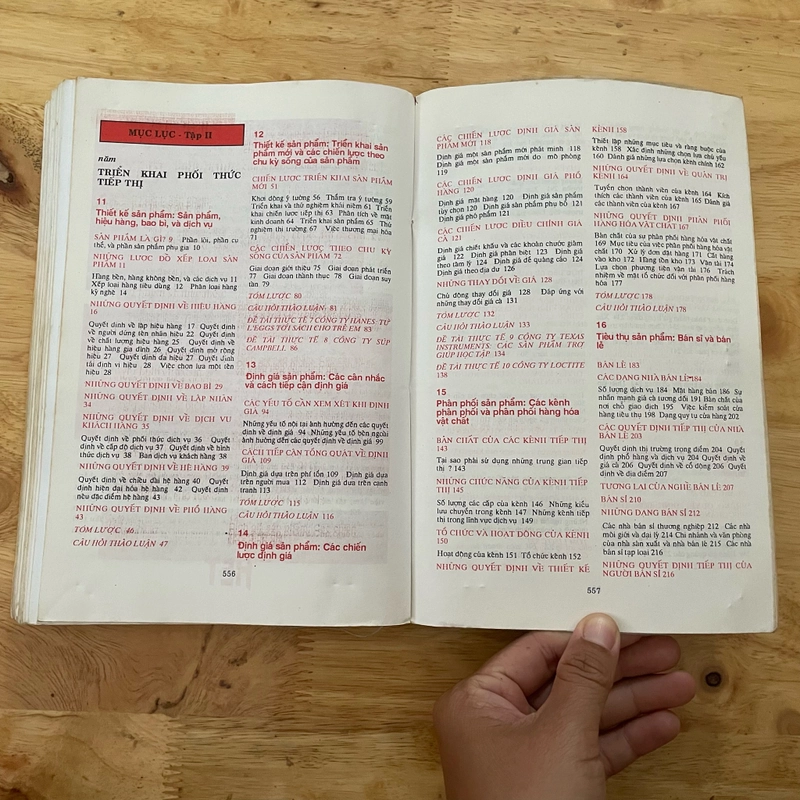 MỤC LỤC - Tập II
năm
TRIỂN KHAI PHỐI THỨC
TIẾP THỊ
11
Thiết kế sản phẩm: Sản phẩm,
hiệu hàng, bao bì, và dịch vụ
SẢN PHẨM LÀ GÌ? 9 Phân lõi, phần cụ
thể, và phần sản phẩm phụ gia 10
NHỮNG LƯỢC ĐỒ XẾP LOẠI SẢN
PHẨM 11
Hàng bền, hàng không bền, và các dịch vụ 11
Xếp loại hàng tiêu dùng 12 Phân loại hàng
kỹ nghệ 14
NHỮNG QUYẾT ĐỊNH VỀ HIỆU HÀNG
16
Quyết định về lập hiệu hàng 17 Quyết định
về người đứng tên nhãn hiệu 22 Quyết định
về chất lượng hiệu hàng 25 Quyết định về
hiệu hàng gia đình 26 Quyết định mở rộng
hiệu 27 Quyết định đa hiệu 27 Quyết định
tái định vị hiệu 28 Việc chọn lựa một tên
hiệu 28
NHỮNG QUYẾT ĐỊNH VỀ BAO BÌ 29
NHỮNG QUYẾT ĐỊNH VỀ LẬP NHÃN
34
NHỮNG QUYẾT ĐỊNH VỀ DỊCH VỤ
KHÁCH HÀNG 35
Quyết định về phối thức dịch vụ 36 Quyết
định về cấp độ dịch vụ 37 Quyết định về hình
thức dịch vụ 38 Ban dịch vụ khách hàng 38
NHỮNG QUYẾT ĐỊNH VỀ HỆ HÀNG 39
Quyết định về chiều dài hệ hàng 40 Quyết
định hiện đại hóa hệ hàng 42 Quyết định
nêu đặc điểm hệ hàng 43
NHỮNG QUYẾT ĐỊNH VỀ PHỔ HÀNG
43
TÓM LƯỢC 46
CÂU HỎI THẢO LUẬN 47
12
Thiết kế sản phẩm: Triển khai sản
phẩm mới và các chiến lược theo
chu kỳ sống của sản phẩm
CHIẾN LƯỢC TRIỂN KHAI SẢN PHẨM
MỚI 51
Khơi động ý tưởng 56 Thẩm tra ý tưởng 59
Triển khai và thử nghiệm khái niệm 61 Triển
khai chiến lược tiếp thị 63 Phân tích về mặt
kinh doanh 64 Triển khai sản phẩm 65 Thử
nghiệm thị trường 67 Việc thương mại hóa
71
CÁC CHIẾN LƯỢC THEO CHU KỲ
SỐNG CỦA SẢN PHẨM 72
Giai đoạn giới thiệu 75 Giai đoạn phát triển
77 Giai đoạn thành thục 78 Giai đoạn suy
tàn 79
TÓM LƯỢC 80
CÂU HỎI THẢO LUẬN 81
ĐỀ TÀI THỰC TẾ 7 CÔNG TY HANES: TỪ
L'EGGS TỚI SÁCH CHO TRẺ EM 83
ĐỀ TÀI THỰC TẾ 8 CÔNG TY SÚP
CAMPBELL 86
13
Định giá sản phẩm: Các cân nhắc
và cách tiếp cận định giá
CÁC YẾU TỐ CẦN XEM XÉT KHI ĐỊNH
GIÁ 94
Những yếu tố nội tại ảnh hưởng đến các quyết
định về định giá 94 Những yếu tố bên ngoài
ảnh hưởng đến các quyết định về định giá 99
CÁCH TIẾP CẬN TỔNG QUÁT VỀ ĐỊNH
GIÁ 109
Định giá dựa trên phí tổn 110 Định giá dựa
trên người mua 112 Định giá dựa trên cạnh
tranh 113
TÓM LƯỢC 115
CÂU HỎI THẢO LUẬN 116
14
Định giá sản phẩm: Các chiến
lược định giá
556
CÁC CHIẾN LƯỢC ĐỊNH GIÁ SẢN
PHẨM MỚI 118
Định giá một sản phẩm mới phát minh 118
Định giá một sản phẩm mới do mô phỏng
119
CÁC CHIẾN LƯỢC ĐỊNH GIÁ PHỔ
HÀNG 120
Định giá mặt hàng 120 Định giá sản phẩm
tùy chọn 120 Định giá sản phẩm phụ bổ 121
Định giá phó phẩm 121
CÁC CHIẾN LƯỢC ĐIỀU CHỈNH GIÁ
CẢ 121
Định giá chiết khấu và các khoản chước giảm
giá 122 Định giá phân biệt 123 Định giá
theo tâm lý 124 Định giá để quảng cáo 124
Định giá theo địa dư 126
NHỮNG THAY ĐỔI VỀ GIÁ 128
Chủ động thay đổi giá 128 Đáp ứng với
những thay đổi giá cả 131
TÓM LƯỢC 132
CÂU HỎI THẢO LUẬN 133
ĐỀ TÀI THỰC TẾ 9 CÔNG TY TEXAS
INSTRUMENTS: CÁC SẢN PHẨM TRỢ
GIÚP HỌC TẬP 134
ĐỀ TÀI THỰC TẾ 10 CÔNG TY LOCTITE
138
15
Phân phối sản phẩm: Các kênh
phân phối và phân phối hàng hóa
vật chất
BẢN CHẤT CỦA CÁC KÊNH TIẾP THỊ
143
Tại sao phải sử dụng những trung gian tiếp
thị ? 143
NHỮNG CHỨC NĂNG CỦA KÊNH TIẾP
THỊ 145
Số lượng các cấp của kênh 146 Những kiểu
lưu chuyển trong kênh 147 Những kênh tiếp
thị trong lĩnh vực dịch vụ 149
TỔ CHỨC VÀ HOẠT ĐỘNG CỦA KÊNH
150
Hoạt động của kênh 151 Tổ chức kênh 152
NHỮNG QUYẾT ĐỊNH VỀ THIẾT KẾ
KÊNH 158
Thiết lập những mục tiêu và ràng buộc của
kênh 158 Xác định những chọn lựa chủ yếu
160 Đánh giá những lựa chọn kênh chính 162
NHỮNG QUYẾT ĐỊNH VỀ QUẢN TRỊ
KÊNH 164
Tuyển chọn thành viên của kênh 164 Kích
thích các thành viên của kênh 165 Đánh giá
các thành viên của kênh 167
NHỮNG QUYẾT ĐỊNH PHÂN PHỐI
HÀNG HÓA VẬT CHẤT 167
Bản chất của sự phân phối hàng hóa vật chất
169 Mục tiêu của việc phân phối hàng hóa vật
chất 170 Xử lý đơn đặt hàng 171 Cất hàng
vào kho 172 Hàng tồn kho 173 Vận tải 174
Lựa chọn phương tiện vận tải 176 Trách
nhiệm về mặt tổ chức đối với phân phối hàng
hóa 177
TÓM LƯỢC 178
CÂU HỎI THẢO LUẬN 178
16
Tiêu thụ sản phẩm: Bán sỉ và bán
lẻ
BÁN LẺ 183
CÁC DẠNG NHÀ BÁN LẺ 184
Số lượng dịch vụ 184 Mặt hàng bán 186 Sự
nhấn mạnh giá cả tương đối 191 Bản chất của
nơi chỗ giao dịch 195 Việc kiểm soát cửa
hàng tiêu thụ 198 Dạng quy tụ cửa hàng 202
CÁC QUYẾT ĐỊNH TIẾP THỊ CỦA NHÀ
BÁN LẺ 203
Quyết định thị trường trọng điểm 204 Quyết
định phổ hàng và dịch vụ 204 Quyết định về
giá cả 206 Quyết định về cổ động 206 Quyết
định về địa điểm 207
TƯƠNG LAI CỦA NGHỀ BÁN LẺ 207
BÁN SỈ 210
NHỮNG DẠNG BÁN SỈ 212
Các nhà bán sỉ thương nghiệp 212 Các nhà
môi giới và đại lý 214 Chi nhánh và văn phòng
của nhà sản xuất và nhà bán lẻ 215 Các nhà
bán sỉ tạp loại 216
NHỮNG QUYẾT ĐỊNH TIẾP THỊ CỦA
NGƯỜI BÁN SỈ 216
557